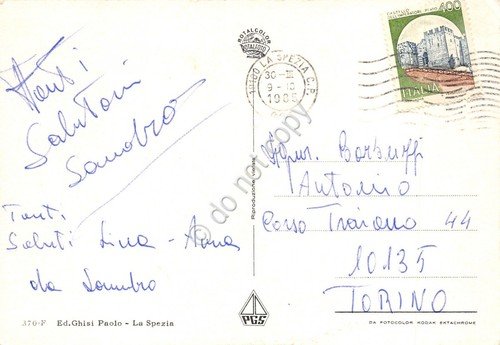 Tanti
Saluti
Sandro
Tanti
Saluti Lina - Anna
da Sandro
370-F Ed. Ghisi Paolo - La Spezia
ROTALCOLOR
LA SPEZIA C.P.
9-10
Riproduzione vietata
PGS
CASTELLO
400
ITALIA
Signor Barbuffi
Antonio
Corso Traiano 44
10135
TORINO
DA FOTOCOLOR KODAK EKTACHROME
© do not copy